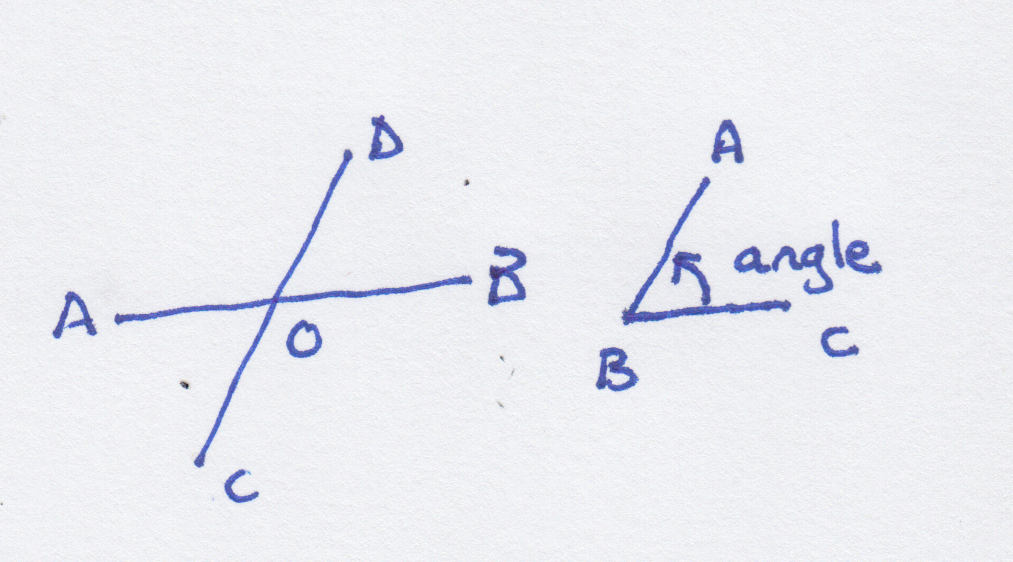 D
A
B
O
C
A
angle
B
C